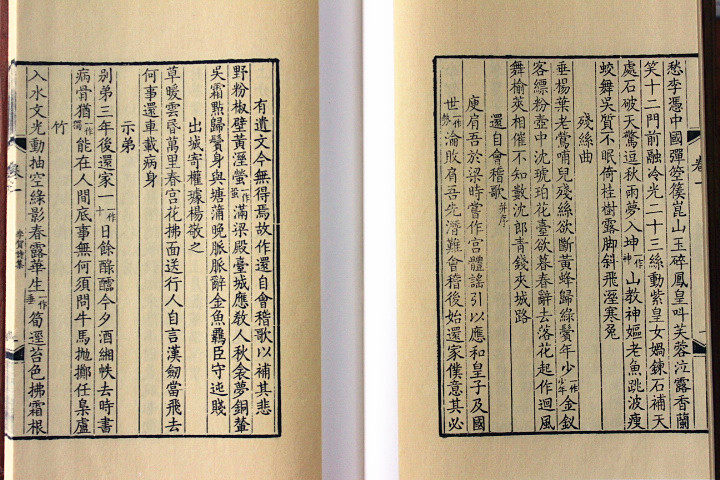 愁李憑中國彈箜篌崑山玉碎鳳皇叫芙蓉泣露香蘭
笑十二門前融冷光二十三絲動紫皇女媧鍊石補天
處石破天驚逗秋雨夢入坤一作神山教神嫗老魚跳波瘦
蛟舞吳質不眠倚桂樹露脚斜飛溼寒兔
殘絲曲
垂楊葉老鶯哺兒殘絲欲斷黃蜂歸綠鬢年少一作少年金釵
客縹粉壺中沈琥珀花臺欲暮春辭去落花起作迴風
舞榆莢相催不知數沈郎青錢夾城路
還自會稽歌并序
庾肩吾於梁時嘗作宮體謠引以應和皇子及國
世一作勢淪敗肩吾先潛難會稽後始還家僕意其必
有遺文今無得焉故作還自會稽歌以補其悲
野粉椒壁黃溼螢一作滿梁殿臺城應教人秋衾夢銅輦
吳霜點歸鬢身與塘蒲晚脈脈辭金魚羈臣守迍賤
出城寄權璩楊敬之
草暖雲昏萬里春宮花拂面送行人自言漢劒當飛去
何事還車載病身
示弟
別弟三年後還家一一作十日餘醁醽今夕酒緗帙去時書
病骨猶一作獨能在人間底事無何須問牛馬拋擲任梟盧
竹
入水文光動抽空綠影春露華生一作垂筍逕苔色拂霜根
李賀詩集